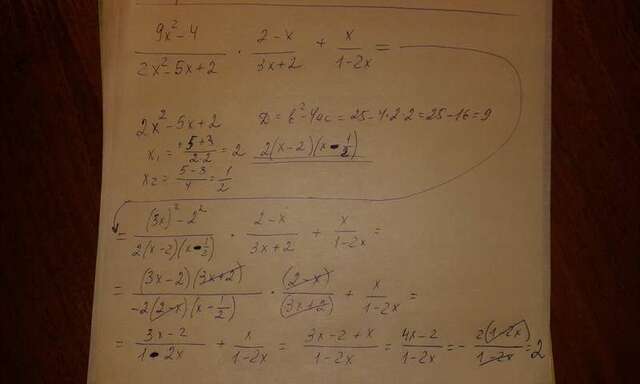 (9x² - 4)/(2x² - 5x + 2) · (2 - x)/(3x + 2) + x/(1 - 2x) =
2x² - 5x + 2    D = b² - 4ac = 25 - 4·2·2 = 25 - 16 = 9
x₁ = (+5 + 3)/(2·2) = 2    2(x - 2)(x - 1/2)
x₂ = (5 - 3)/4 = 1/2
= ((3x)² - 2²)/(2(x - 2)(x - 1/2)) · (2 - x)/(3x + 2) + x/(1 - 2x) =
= ((3x - 2)(3x + 2))/(-2(2 - x)(x - 1/2)) · (2 - x)/(3x + 2) + x/(1 - 2x) =
= (3x - 2)/(1 - 2x) + x/(1 - 2x) = (3x - 2 + x)/(1 - 2x) = (4x - 2)/(1 - 2x) = - 2(1 - 2x)/(1 - 2x) = 2